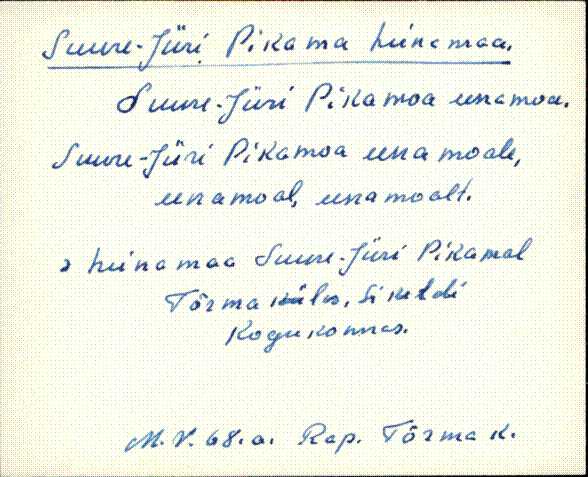 Suure-Jüri Pikama heinamaa.
Suure-Jüri Pikamoa einamoa.
Suure-Jüri Pikamoa einamoale,
einamoal, einamoalt.
heinamaa Suure-Jüri Pikamal
Tõrma külas, Sikeldi
Kogukonnas.
M.V. 68.a. Rap. Tõrma k.